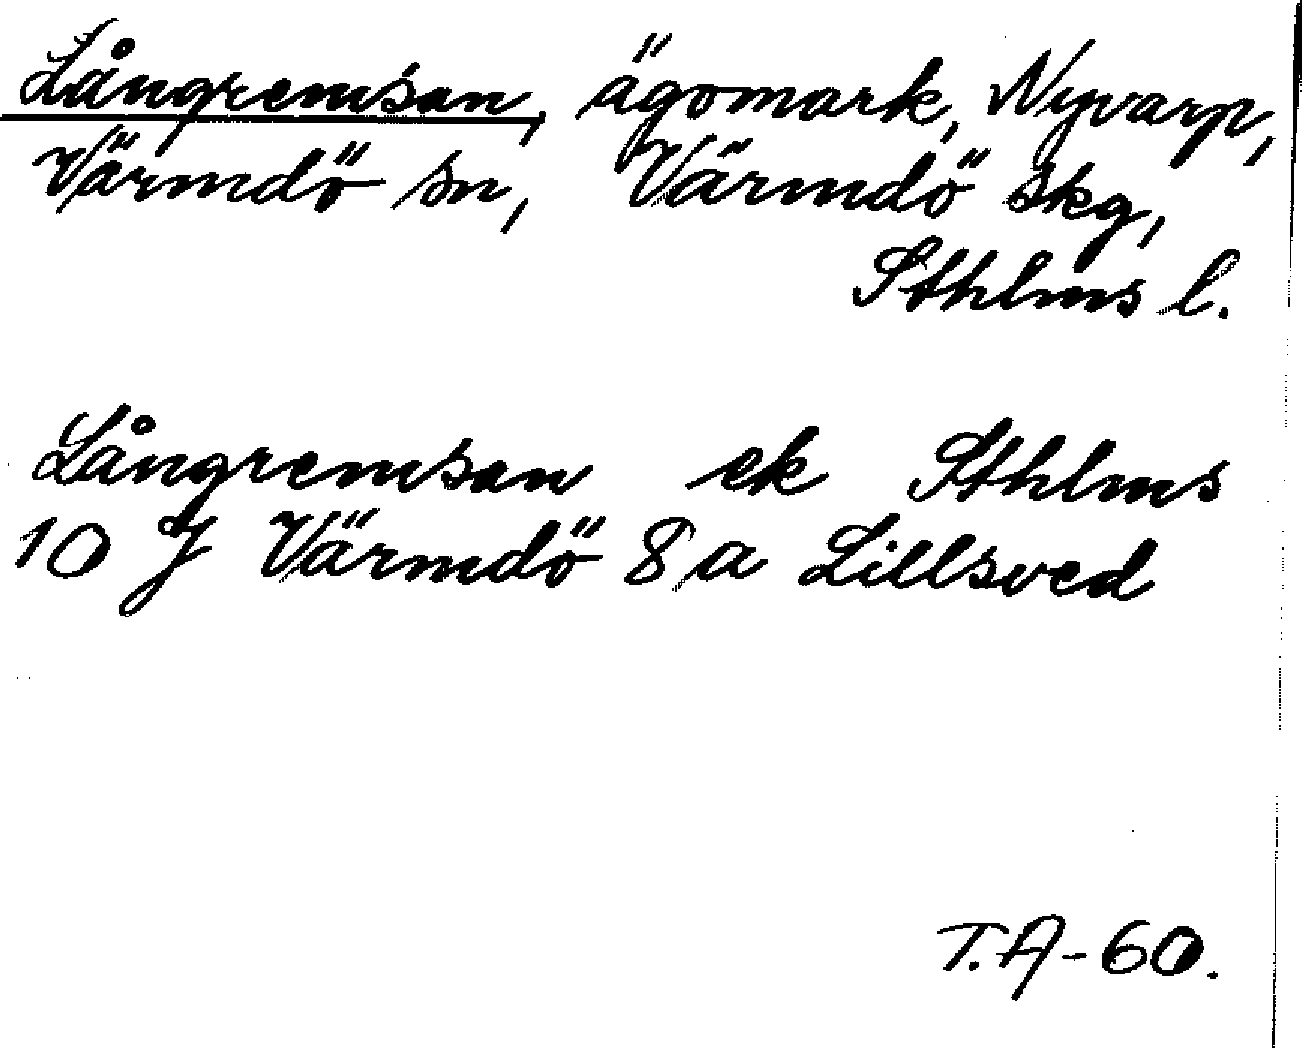 Långremsan, ägomark, Nyvarp,
Värmdö sn, Värmdö skg,
Sthlms l.
Långremsan ek Sthlms
10 J Värmdö 8 a Lillsved
T.A-60.